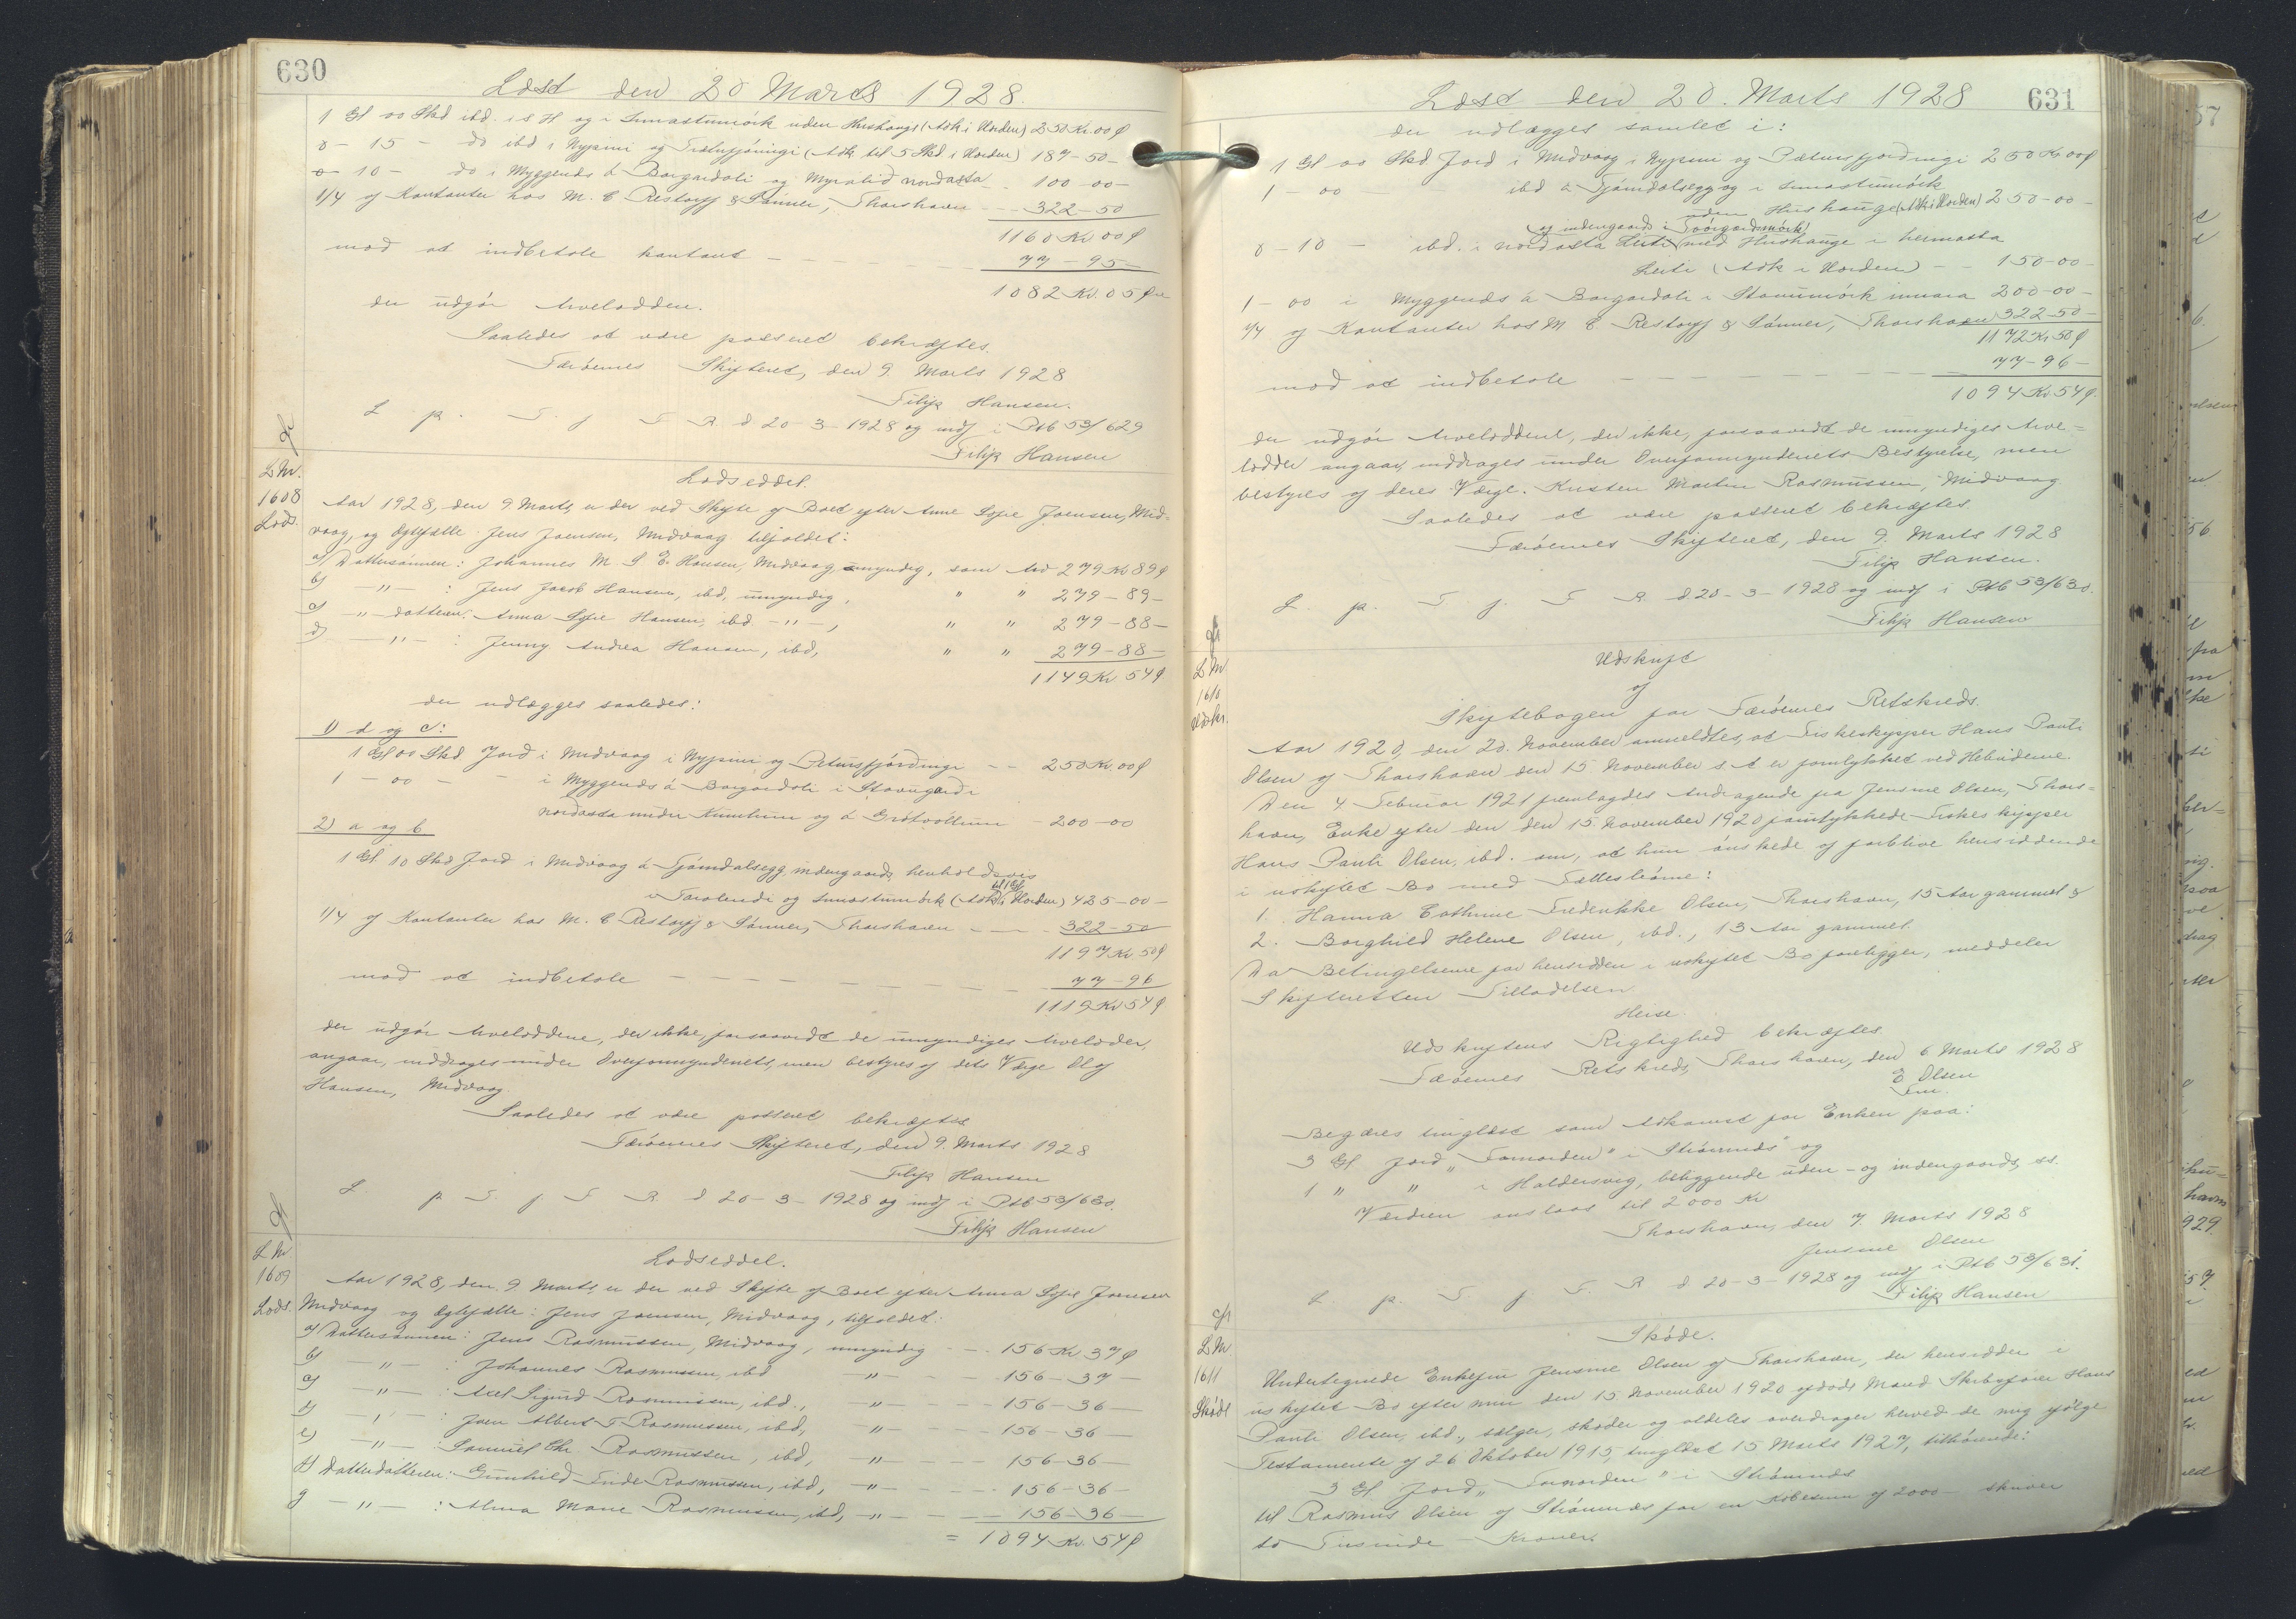 630
Læst den 20 Marts 1928.
1 Gl 00 Skd ibd. i s H og i Innastumörk uden Hushauge (Adk. i Norden) 250 Kr. 00 ø
0 - 15 - do ibd i Nypini og (Adk til 5 Skd i Norden) 187-50-
0 - 10 - do i Myggenæs á Borgardali og Myralid nordasta 100-00-
1/4 af Kontanter hos M. C Restorff & Sönner, Thorshavn - - 322-50
1160 Kr 00 ø
mod at indbetale kontant - - - - - 77-95-
1082 Kr. 05 Øre
der udgör Arvelodden.
Saaledes at være passeret bekræftes.
Færöernes Skifteret, den 9. Marts 1928
Filip Hansen.
L p. T. f F R d 20-3-1928 og indf i Ptb 53/629
Filip Hansen
L Nr.
1608
Lods.
Lodseddel.
Aar 1928, den 9 Marts, er der ved Skifte af Boet efter Anne Sofie Joensen, Mid-
vaag, og Ægtefælle Jens Joensen, Midvaag tilfaldet:
a) Dattersönnen: Johannes M. S E. Hansen, Midvaag umyndig, som Arv 279 Kr 89 ø
b) - " - : Jens Jacob Hansen, ibd, umyndig, " " 279-89-
c) - " - datteren: Anna Sofie Hansen, ibd - " -, " " 279-88-
d) - " - : Jenny Andrea Hansen, ibd, " " 279-88-
1149 Kr 54 ø
der udlægges saaledes:
1) d og c:
1 Gl 00 Skd Jord i Midvaag i Nypini og Pætursfjórdingi - - 250 Kr. 00 ø
1 - 00 - - i Myggenæs á Borgardali i Stovugardi
nordasta under og á Grótvöllum - 200-00
2) a og b
1 Gl 10 Skd Jord i Midvaag á Fjámdalsegg, indengaards, henholdsvis
i og Innastumörk (Adk til 1 Gl i Norden) 425-00-
1/4 af Kontanter hos M. C Restorff & Sönner, Thorshavn - - - 322-50
1197 Kr 50 ø
mod at indbetale - - - - - - - 77-96
1119 Kr 54 ø
der udgör Arvelodderne, der ikke, forsaavidt de umyndiges Arvelodder,
angaar, inddrages under Overformynderiets, men bestyres af dets Værge Olaf
Hansen, Midvaag.
Saaledes at være passeret bekræftes
Færöernes Skifteret, den 9. Marts 1928
Filip Hansen
L p T. f F R d 20-3-1928 og indf i Ptb 53/630.
Filip Hansen
L Nr.
1609
Lods.
Lodseddel.
Aar 1928, den 9 Marts, er der ved Skifte af Boet efter Anna Sofie Joensen
Midvaag og Ægtefælle: Jens Joensen, Midvaag, tilfaldet:
a) Dattersönnen: Jens Rasmussen, Midvaag, umyndig - - 156 Kr 37 ø
b) - " - : Johannes Rasmussen, ibd - " - - - 156-37-
c) - " - : Axel Sigurd Rasmussen, ibd., - " - - - 156-36-
d) - " - : Joen Albert F Rasmussen, ibd, - " - - - 156-36-
e) - " - : Samuel Chr. Rasmussen, ibd, - " - - - 156-36-
f) Datterdatteren: Gunhild Rasmussen, ibd, - " - - - 156-36-
g - " - : Alma Marie Rasmussen, ibd, - " - - - 156-36-
= 1094 Kr. 54 ø
631
Læst den 20. Marts 1928
der udlægges samlet i:
1 Gl 00 Skd Jord i Midvaag i Nypini og Pætursfjordingi 250 Kr 00 ø
1 - 00 ibd á Fjámdalsegg og i Innastumörk
uden Hushauge (Adk i Norden) 250-00-
(og indengaards i
0 - 10 - ibd. i nordasta Leiti med Hushauge i heimasta
Leiti (Adk i Norden) - - 150-00-
1 - 00 i Myggenæs á Borgardali i Stovumörk innara 200-00-
1/4 af Kontanter hos M C. Restorff & Sönner, Thorshavn 322-50-
1172 Kr 50 ø
mod at indbetale - - - - - - 77-96-
1094 Kr 54 ø.
der udgör Arveloddene, der ikke, forsaavidt de umyndiges Arve-
lodder angaar, inddrages under Overformynderiets Bestyrelse, men
bestyres af deres Værge. Kristen Martin Rasmussen, Midvaag
Saaledes at være passeret bekræftes.
Færöernes Skifteret, den 9. Marts 1928
Filip Hansen.
L. p. T. f. F R. d 20-3-1928 og indf i Ptb 53/630.
Filip Hansen
L Nr
1610
Udskr.
Udskrift
af
Skiftebogen for Færöernes Retskreds.
Aar 1920, den 20. November anmeldtes, at Fiskeskipper Hans Pauli
Olsen af Thorshavn den 15 November s A er forulykket ved Hebriderne.
Den 4 Februar 1921 fremlagdes Andragende fra Jensine Olsen, Thors-
havn, Enke efter den den 15. November 1920 forulykkede Fiskeskipper
Hans Pauli Olsen, ibd. om, at hun önskede at forblive hensiddende
i uskiftet Bo med Fællesbörne:
1. Hanna Cathrine Fredrikke Olsen, Thorshavn, 15 Aar gammel &
2. Borghild Helene Olsen, ibd., 13 Aar gammel.
Da Betingelserne for hensidden i uskiftet Bo foreligger, meddeler
Skifteretten Tilladelsen
Heise.
Udskriftens Rigtighed bekræftes.
Færöernes Retskreds, Thorshavn, den 6 Marts 1928
E Olsen
Fm.
Begæres tinglæst som Adkomst for Enken paa:
3 Gl Jord "Tamorden" i Strömnæs og
1 " " i Haldersvig, beliggende uden- og indengaards, ss.
Værdien anslaas til 2000 Kr
Thorshavn, den 7. Marts 1928
Jensine Olsen
L p. T. f F. R d 20-3-1928 og indf i Ptb 53/631.
Filip Hansen
L Nr
1611
Sköde
Sköde.
Undertegnede Enkefru Jensine Olsen af Thorshavn, der hensidder i
uskiftet Bo efter min den 15 November 1920 afdöde Mand Skibsförer Hans
Pauli Olsen, ibd., sælger, sköder og aldeles overdrager herved de mig ifölge
Testamente af 26 Oktober 1915, tinglæst 15 Marts 1927, tilhörende:
3 Gl. Jord "Tamorden" i Strömnæs
til Rasmus Olsen af Strömnæs for en Købesum af 2000 - skriver
to Tusinde - Kroner.